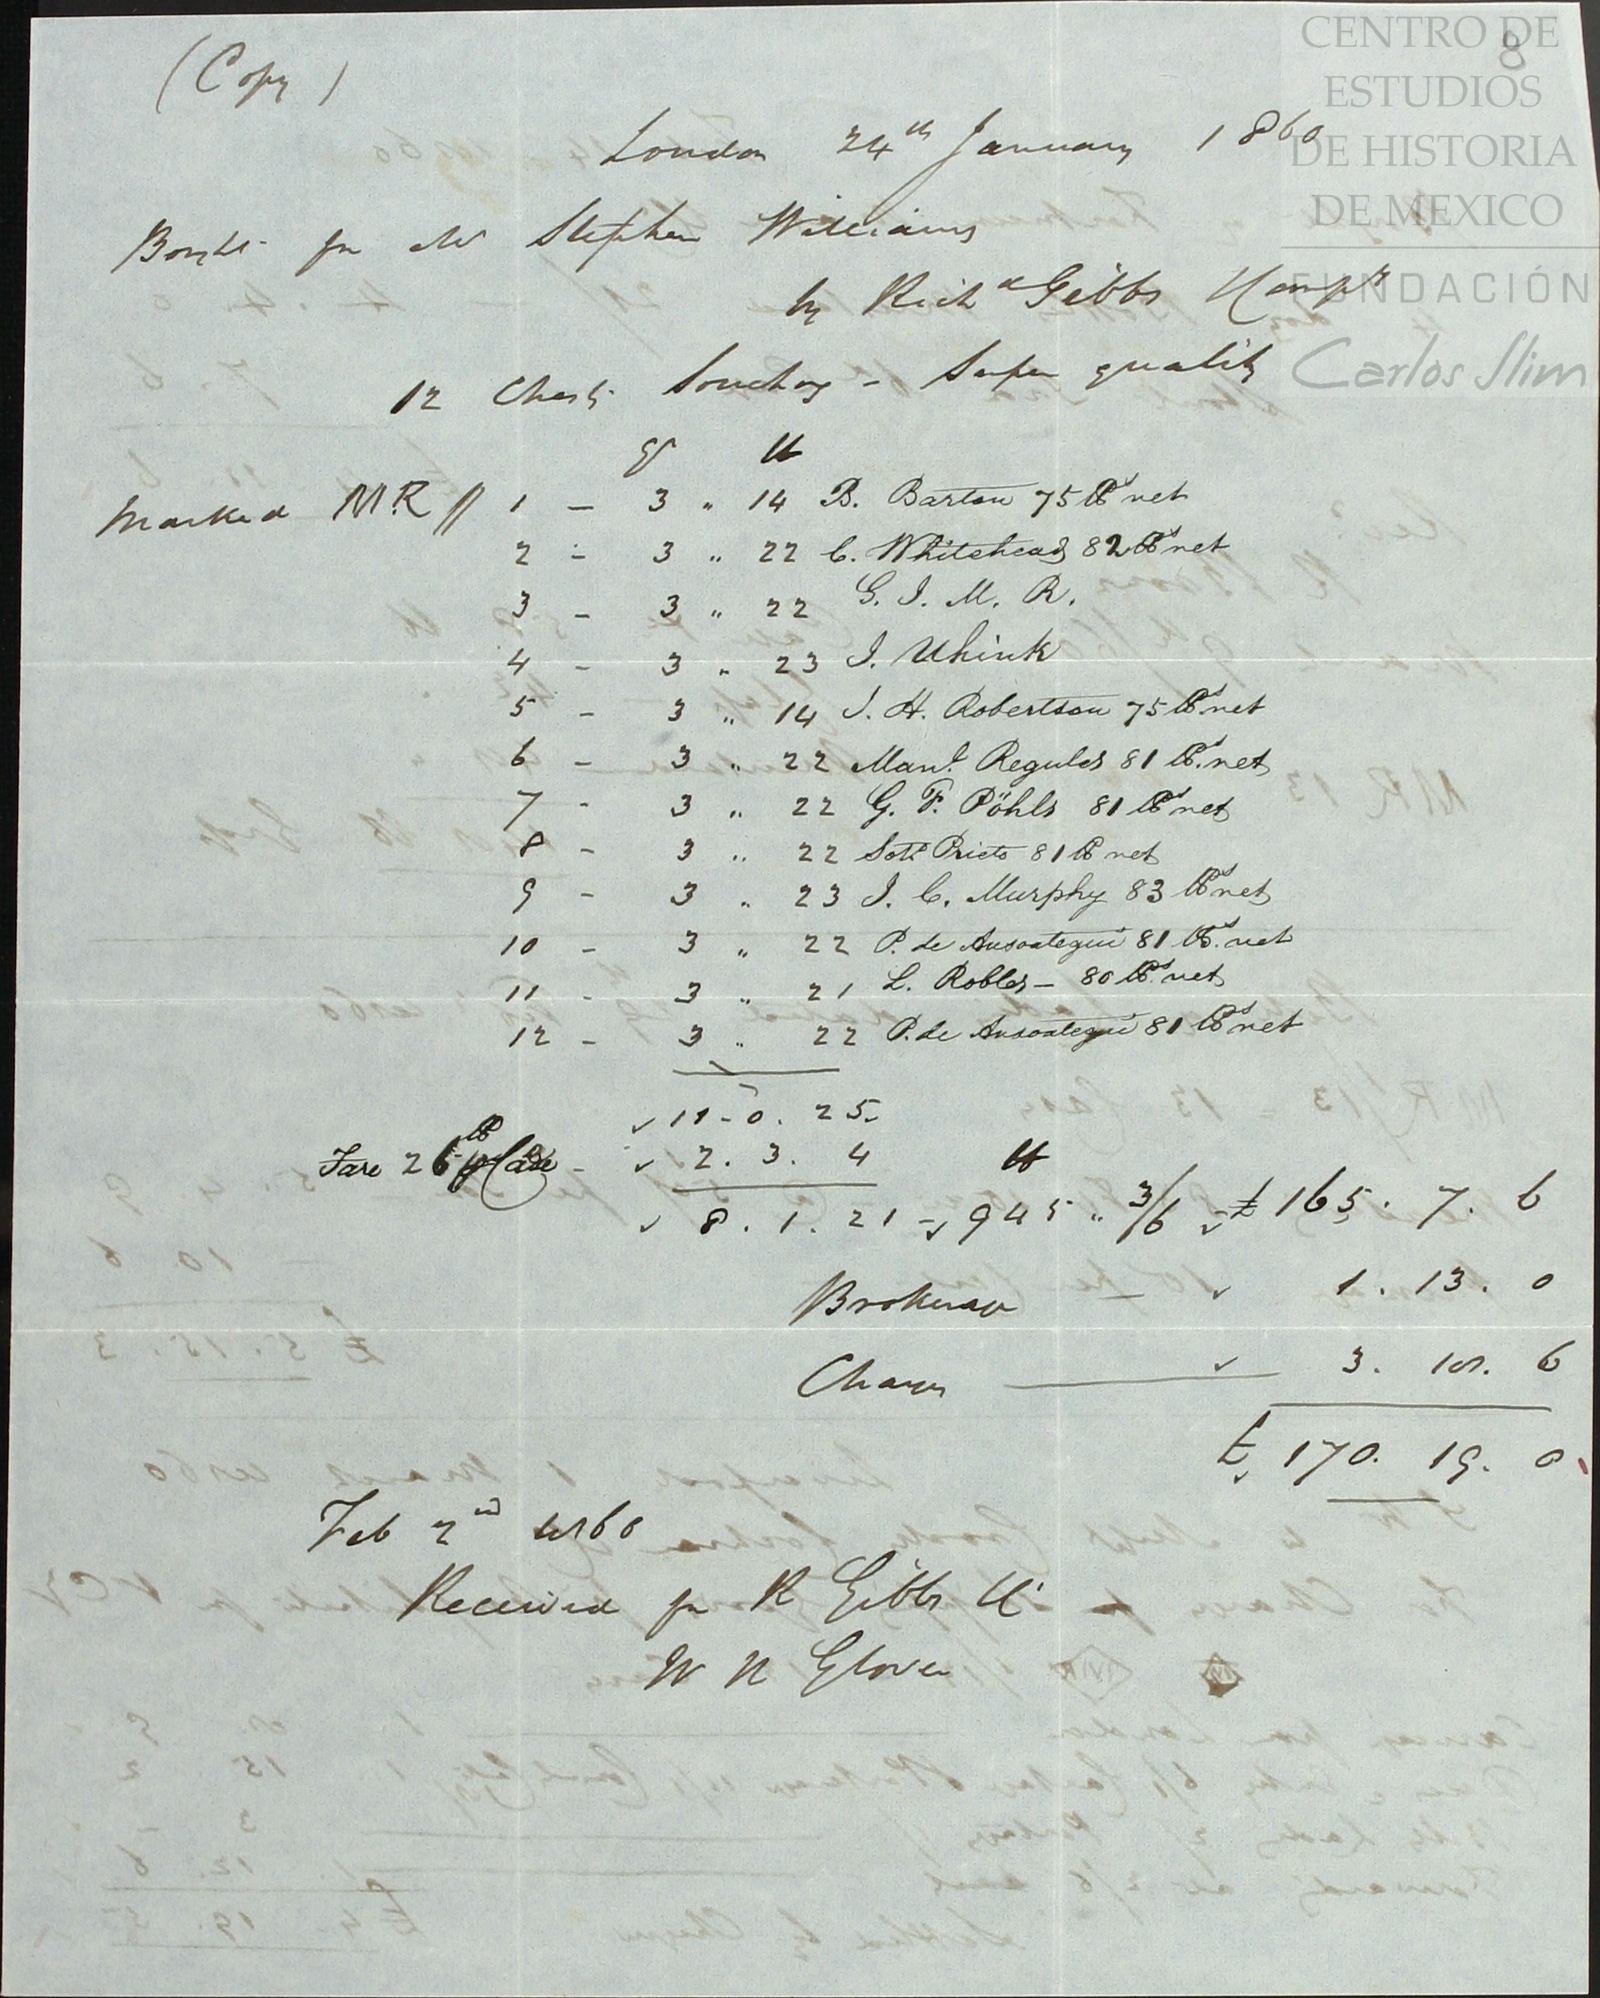 8
CENTRO DE
ESTUDIOS
DE HISTORIA
DE MEXICO
FUNDACIÓN
Carlos Slim
(Copy)
London 24th January 1860
Bought for Mr Stephen Williams
by Richd Gibbs & Compy
12 Chests Souchong - Super quality
qr lb
Marked MR // 1 - 3 " 14 B. Barton 75 lbs net
2 - 3 " 22 C. Whitehead 82 lbs net
3 - 3 " 22 G. I. M. R.
4 - 3 " 23 J. Uhink
5 - 3 " 14 J. H. Robertson 75 lbs net
6 - 3 " 22 Manl. Regules 81 lbs. net
7 - 3 " 22 G. F. Pöhls 81 lbs net
8 - 3 " 22 Soto Prieto 81 lb net
9 - 3 " 23 J. C. Murphy 83 lbs net
10 - 3 " 22 P. de Ansoategui 81 lbs. net
11 - 3 " 21 L. Robles - 80 lbs. net
12 - 3 " 22 P. de Ansoategui 81 lbs net
11 - 0 . 25
Tare 26 lb p Case - 2 . 3 . 4 lb
8 . 1 . 21 - 945 " 3/6 - £ 165 . 7 . 6
Brokerage — 1 . 13 . 0
Charges — 3 . 18 . 6
£ 170 . 19 . 0
Feb 2nd 1860
Received for R Gibbs & Co
W H Glover